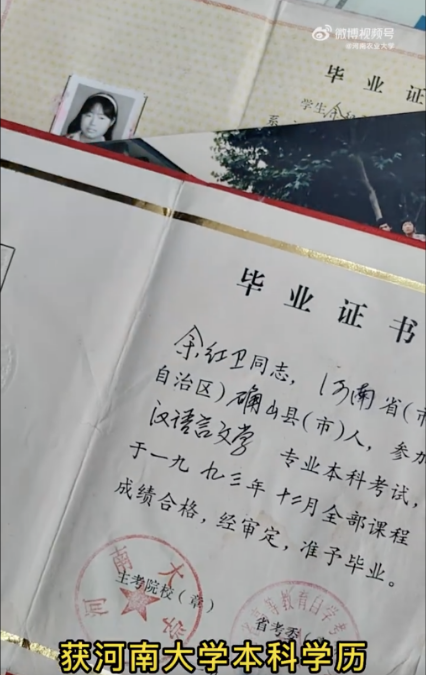 微博视频号
@河南农业大学
毕业证
学生余红
系
毕业证书
余红卫同志，河南省（市
自治区）确山县（市）人，参加
汉语言文学 专业本科考试，
于一九九三年十二月全部课程
成绩合格，经审定，准予毕业。
河南大学
生考院校（章）
高等教育自学考
省考委（章
获河南大学本科学历